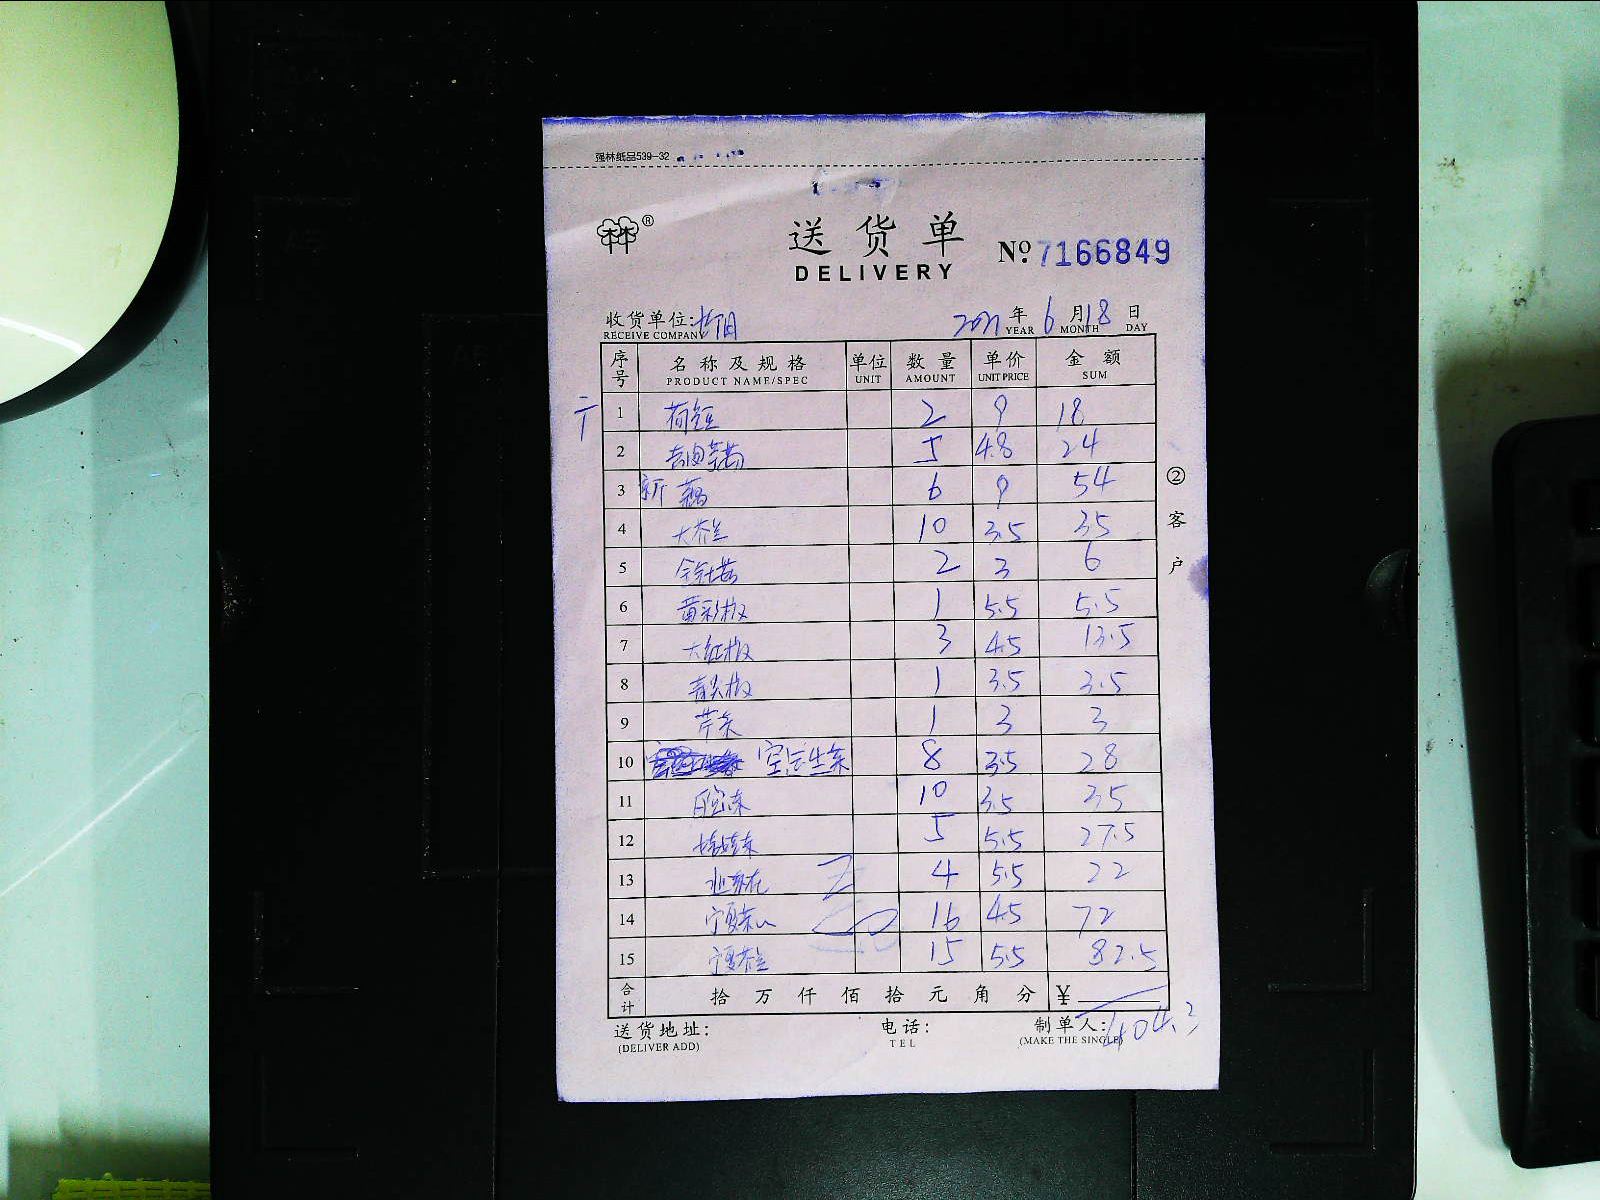 强林纸品539-32
林®
送货单 No. 7166849
DELIVERY
收货单位: 2021年6月18日
RECEIVE COMPANY YEAR MONTH DAY
序号 名称及规格 单位 数量 单价 金额
PRODUCT NAME/SPEC UNIT AMOUNT UNIT PRICE SUM
1 荷豆 2 9 18
2 5 4.8 24
3 新藕 6 9 54
4 大芥兰 10 3.5 35
5 2 3 6
6 黄彩椒 1 5.5 5.5
7 大红椒 3 4.5 13.5
8 青尖椒 1 3.5 3.5
9 芹菜 1 3 3
10 空心生菜 8 3.5 28
11 10 3.5 35
12 娃娃菜 5 5.5 27.5
13 4 5.5 22
14 宁夏菜心 16 4.5 72
15 宁夏芥兰 15 5.5 82.5
合计 拾万仟佰拾元角分 ¥
②客户
送货地址: 电话: 制单人:
(DELIVER ADD) TEL (MAKE THE SINGLE)